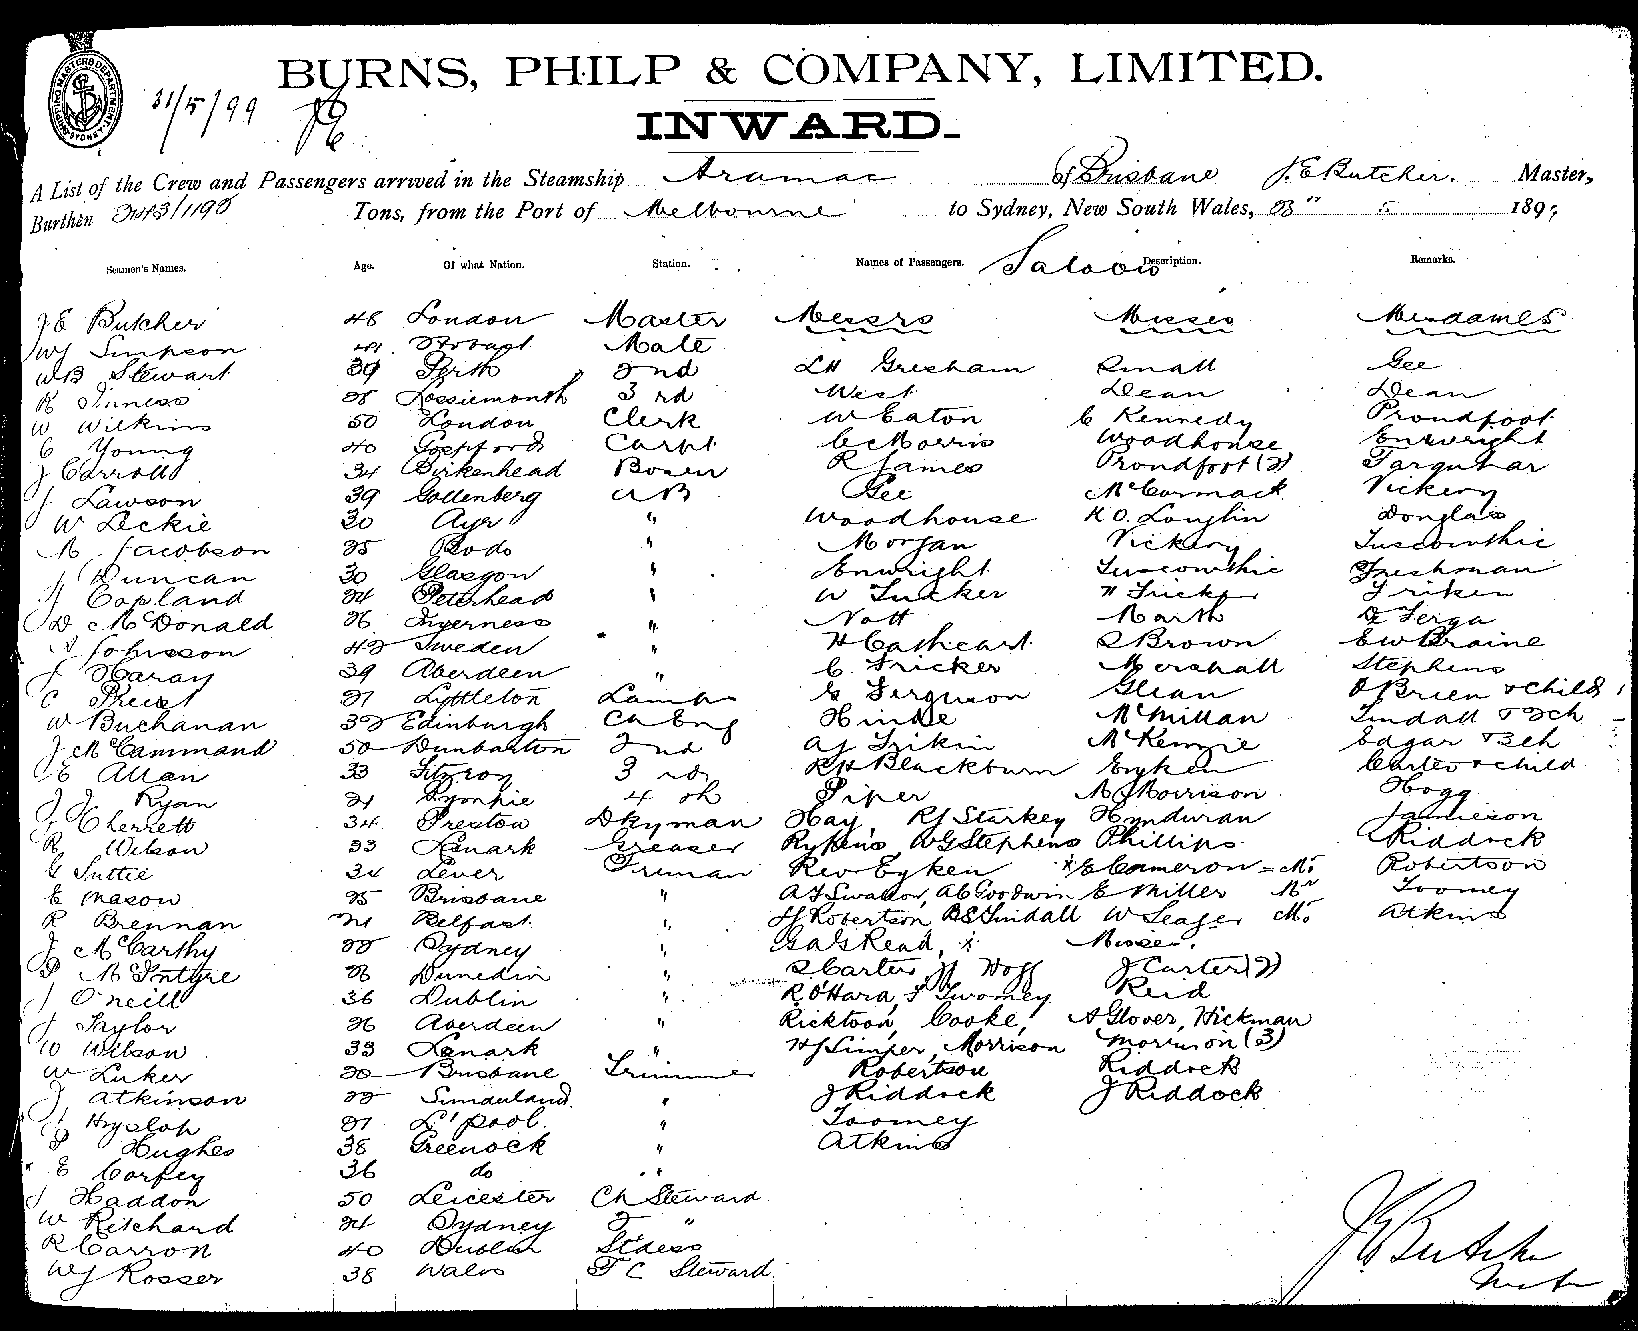 31/5/99
BURNS, PHILP & COMPANY, LIMITED.
INWARD.
A List of the Crew and Passengers arrived in the Steamship Aramac of Brisbane J. E Butcher. Master,
Burthen Tons, from the Port of Melbourne to Sydney, New South Wales, 5 189
Seamen's Names. Age. Of what Nation. Station. Names of Passengers. Saloon Description. Remarks.
J E Butcher 48 London Master Messrs Misses Mesdames
WJ Simpson Mate
WB Stewart 39 Perth 2nd LH Gresham Small Gee
R Inness 28 Lossiemouth 3 rd West Dean Dean
W Wilkins 50 London Clerk W Eaton C Kennedy Proudfoot
C Young 40 Carpt C Morris Woodhouse Enwright
J Carroll 34 Birkenhead Bosun R James Proudfoot (2) Farquhar
J Lawson 39 Gottenberg AB Gee McCormack Vickery
W Leckie 30 Ayr " Woodhouse K O. Loughlin Douglas
M Jacobson 25 Bodo " Morgan Vickery
J Duncan 30 Glasgow " Enwright Freshman
J Copland 24 Peterhead " W Tucker
D McDonald 26 Inverness " Nott Marth
A Johnson 42 Sweden " H Cathcart S Brown EW Braine
J Haray 39 Aberdeen " C Fricker Marshall Stephens
C 21 Lyttleton Lamps G Ferguson Glean O'Brien & child
W Buchanan 32 Edinburgh Ch Eng Hinde McMillan Tindall & 2ch
J McCammand 50 Dunbarton 2nd AJ Trikin McKenzie Edgar & 3ch
E Allan 33 Fitzroy 3 rd RH Blackburn Eyken Carter & child
J J Ryan 21 4 th Piper M J Morrison Hogg
J Cherrett 34 Preston Dkyman Hay, RJ Starkey Hynduran Jamieson
R Wilson 33 Lanark Greaser Rykens, WG Stephens Phillips Riddock
G Suttie 34 Leven Fireman Rev Eyken E Cameron Robertson
E Mason 25 Brisbane " AJ Swallow, AC Goodwin E Miller Mr Toomey
R Brennan 21 Belfast " JJ Robertson BS Tindall W Seager Atkins
J McCarthy 22 Sydney " Read, Misses.
D McIntyre 26 Dunedin " S Carter, Hoff J Carter (2)
J O'neill 36 Dublin " R O'Hara, J Twomey Reid
J Taylor 26 Aberdeen " Ricktoon, Cooke, A Glover, Hickman
W Wilson 33 Lanark " HJ Simper, Morrison Morrison (3)
W Luker 20 Brisbane Trimmer Robertson Riddock
J Atkinson 22 Sunderland " J Riddock J Riddock
J Hyslop 21 L'pool " Toomey
P Hughes 38 Greenock " Atkins
E Corfey 36 do "
J Haddon 50 Leicester Ch Steward
W Ritchard 24 Sydney "
R Carron 40 Dublin Stdess
WJ Rosser 38 Wales F C Steward
J E Butcher